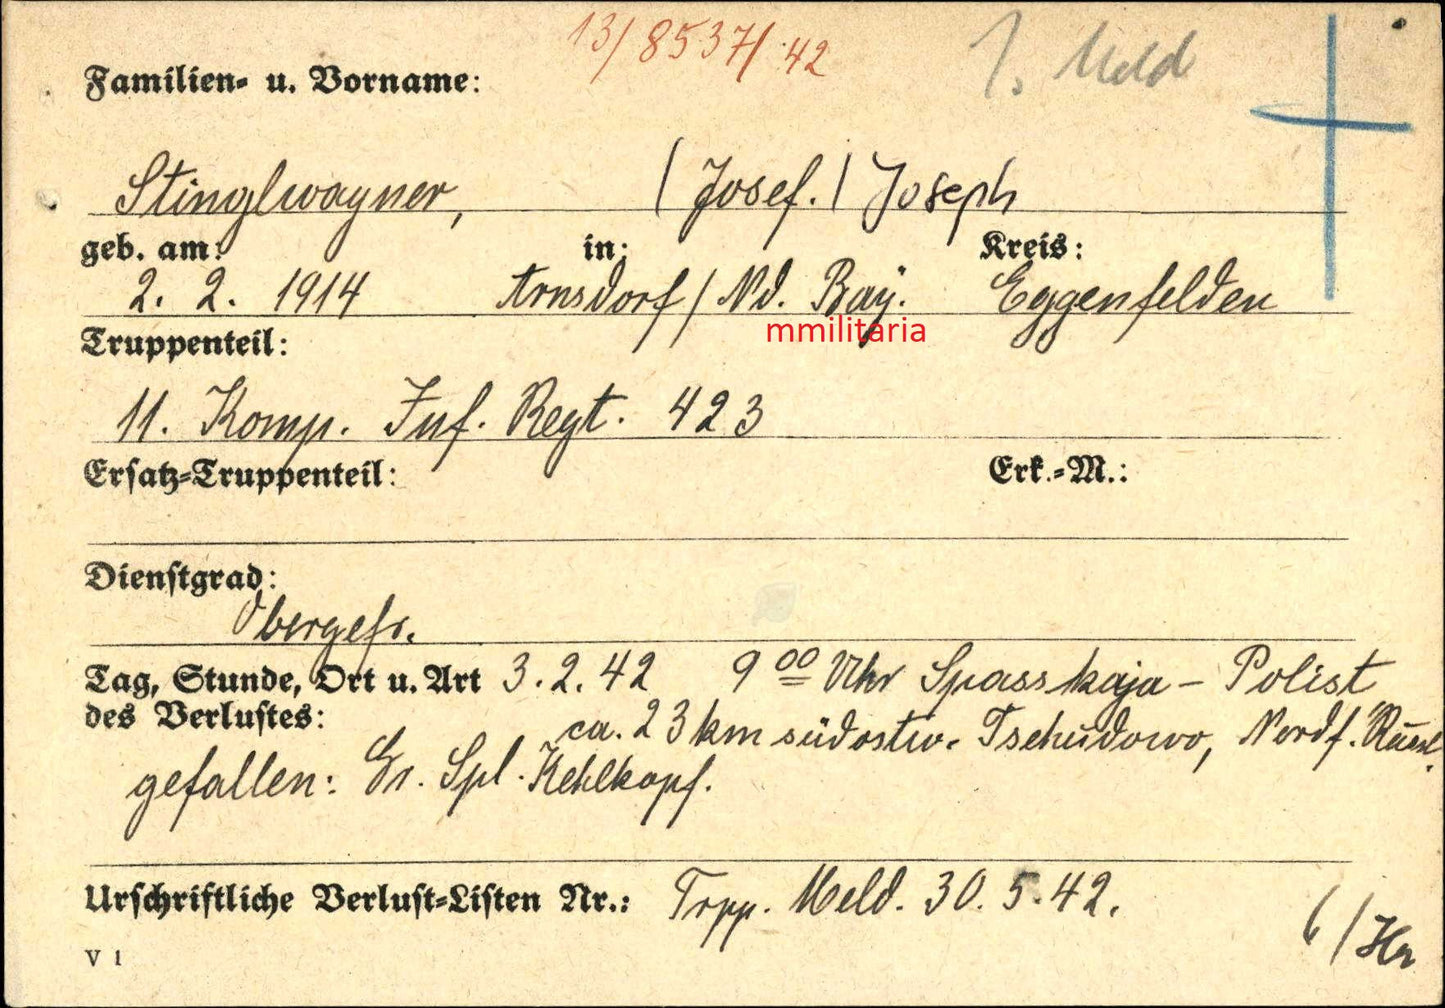 13/8537/42
1. Meld
Familien- u. Vorname:
Stinglwagner, (Josef.) Joseph
geb. am: in: Kreis:
2. 2. 1914 Arnsdorf / Nd. Bay. Eggenfelden
mmilitaria
Truppenteil:
11. Komp. Inf. Regt. 423
Ersatz-Truppenteil: Erk.-M.:
Dienstgrad:
Obergefr.
Tag, Stunde, Ort u. Art 3.2.42 9 00 Uhr Spasskaja - Polist
des Verlustes: ca. 23 km südostw. Tschudowo, Nordf.
gefallen: Gr. Spl. Kehlkopf.
Urschriftliche Verlust-Listen Nr.: Trpp. Meld. 30.5.42.
V 1